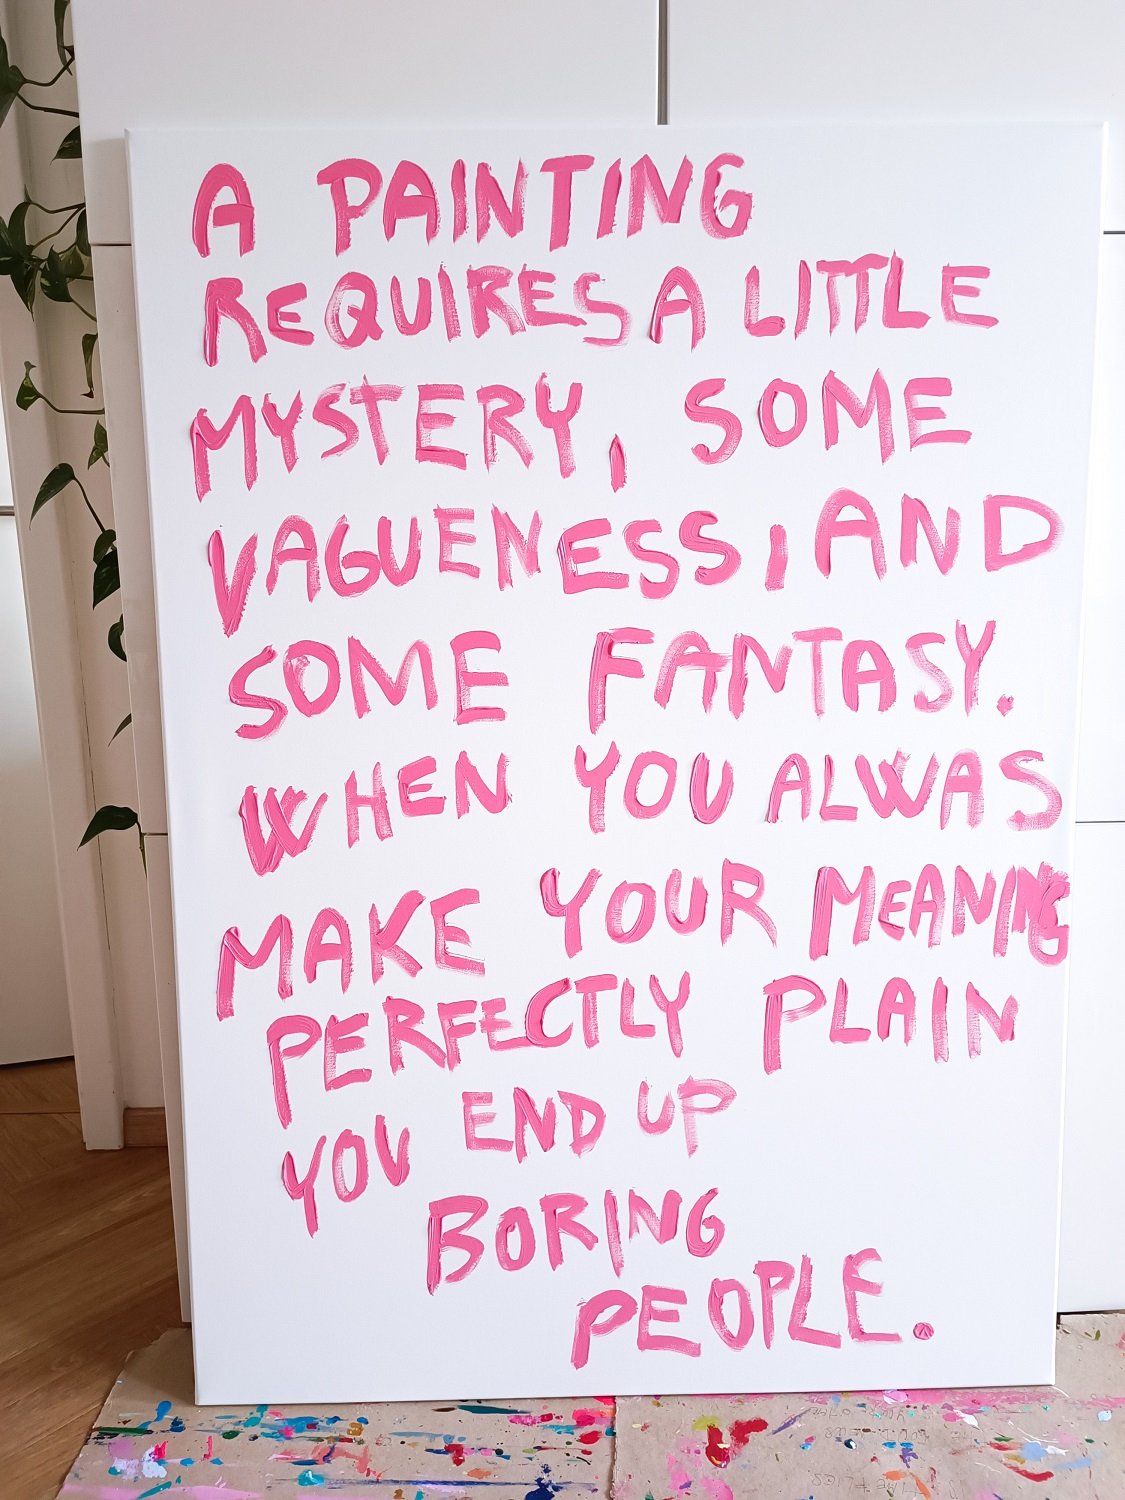 A PAINTING
REQUIRES A LITTLE
MYSTERY, SOME
VAGUENESS, AND
SOME FANTASY.
WHEN YOU ALWAS
MAKE YOUR MEANING
PERFECTLY PLAIN
YOU END UP
BORING
PEOPLE.